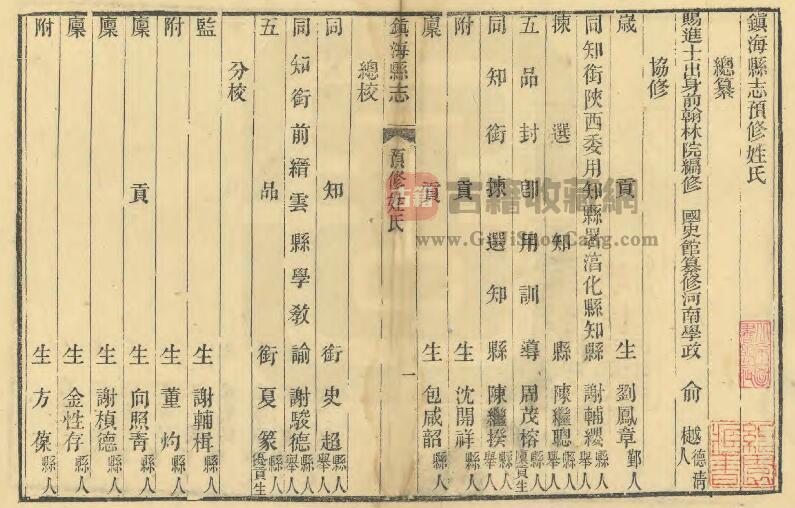 鎮海縣志預修姓氏
總纂
賜進士出身前翰林院編修 國史館纂修河南學政 俞樾 德清人
協修
歲貢生 劉鳳章 鄞人
同知銜陝西委用知縣署涽化縣知縣 謝輔纓 縣人舉人
揀選知縣 陳繼聰 縣人舉人
五品封卽用訓導 周茂榕 縣人優貢生
同知銜揀選知縣 陳繼揆 縣人舉人
附貢生 沈開祥 縣人
廩貢生 包咸韶 縣人
鎮海縣志
預修姓氏
一
總校
同知銜 史超 縣人舉人
同知銜前縉雲縣學教諭 謝駿德 縣人舉人
五品銜 夏篆 縣人優貢生
分校
監生 謝輔楫 縣人
附生 董灼 縣人
廩貢生 向照青 縣人
廩生 謝楨德 縣人
廩生 金性存 縣人
附生 方葆 縣人
古籍
古籍收藏網
www.GuJiShouCang.com